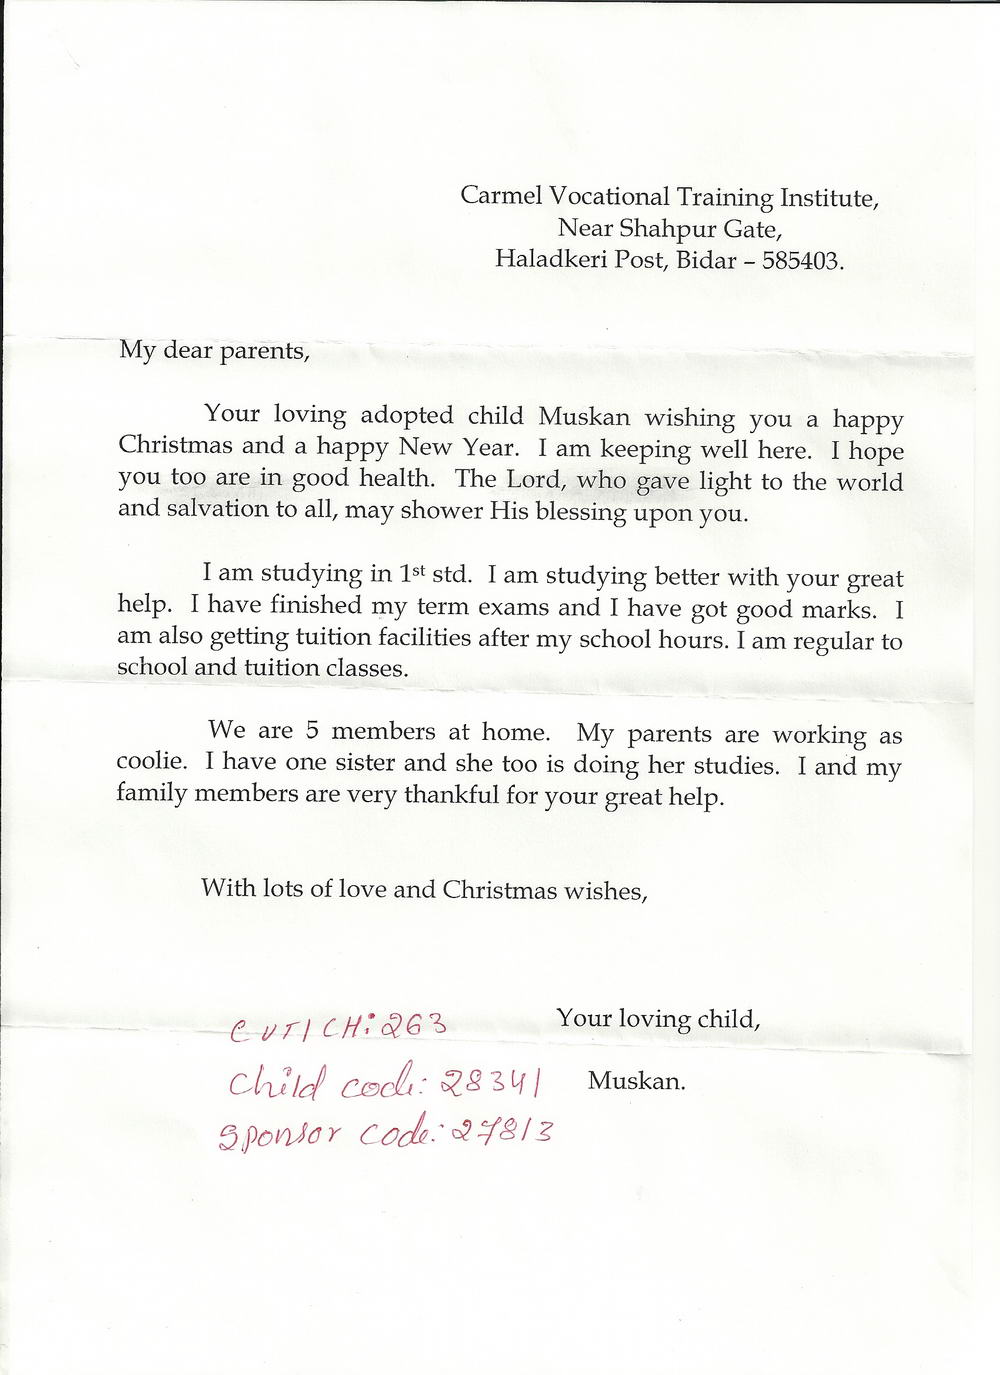 Carmel Vocational Training Institute,
Near Shahpur Gate,
Haladkeri Post, Bidar – 585403.
My dear parents,
Your loving adopted child Muskan wishing you a happy
Christmas and a happy New Year. I am keeping well here. I hope
you too are in good health. The Lord, who gave light to the world
and salvation to all, may shower His blessing upon you.
I am studying in 1st std. I am studying better with your great
help. I have finished my term exams and I have got good marks. I
am also getting tuition facilities after my school hours. I am regular to
school and tuition classes.
We are 5 members at home. My parents are working as
coolie. I have one sister and she too is doing her studies. I and my
family members are very thankful for your great help.
With lots of love and Christmas wishes,
Your loving child,
Muskan.
CVTI CH: 263
Child code: 28341
Sponsor code: 27813